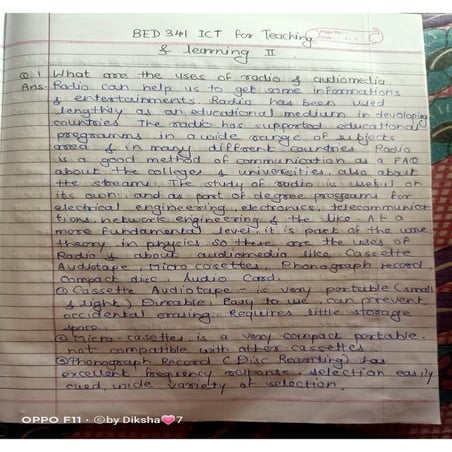 BED 341 ICT for Teaching
& learning II
Q.1 What are the uses of radio & audiomedia
Ans- Radio can help us to get some informations
& entertainments. Radio has been used
lengthly as an educational medium in devoloping
countries. The radio has supported educational
programms in a wide range of subjects
area & in many diffrent countries Radio
is a good method of communication as a FAQ
about the colleges & universities, also about
the streams. The study of radio is useful on
its own and as part of degree programs for
electrical engineering, electronics, telecommunica-
tions, network engineering & the like. At a
more fundamental level, it is part of the wave
theory in physics. so these are the uses of
Radio & about audiomedia like Cassette
Audiotape, Micro casettes, Phonograph record
Compact disc, Audio Card.
① Cassette Audiotape - is very portable (small
& light) Durable, Easy to use, can prevent
accidental erasing. Requires little storage
space.
② Micro-casettes is a very compact portable.
not compatible with other cassettes
③ Phonograph Record (Disc Recording) has
excellent frequency response, selection easily
cued, wide variety of selection.
OPPO F11 · ©by Diksha🩷7